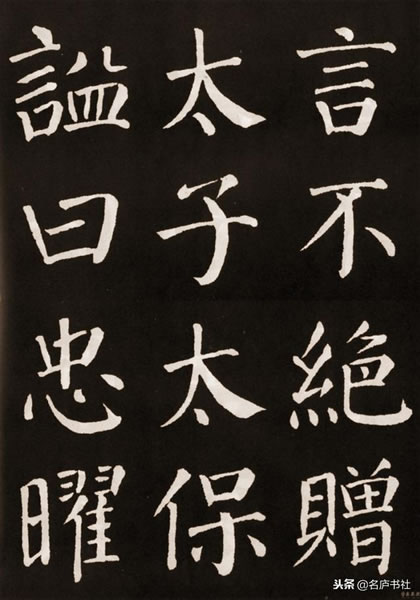 言不絶贈
太子太保
謚曰忠曜
头条@名庐书社